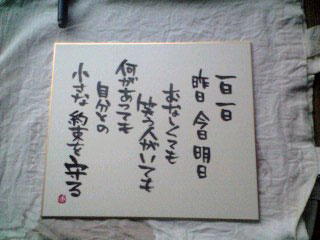 一日一日
昨日 今日 明日
ても
ても
何があっても
自分との
小さな約束を守る